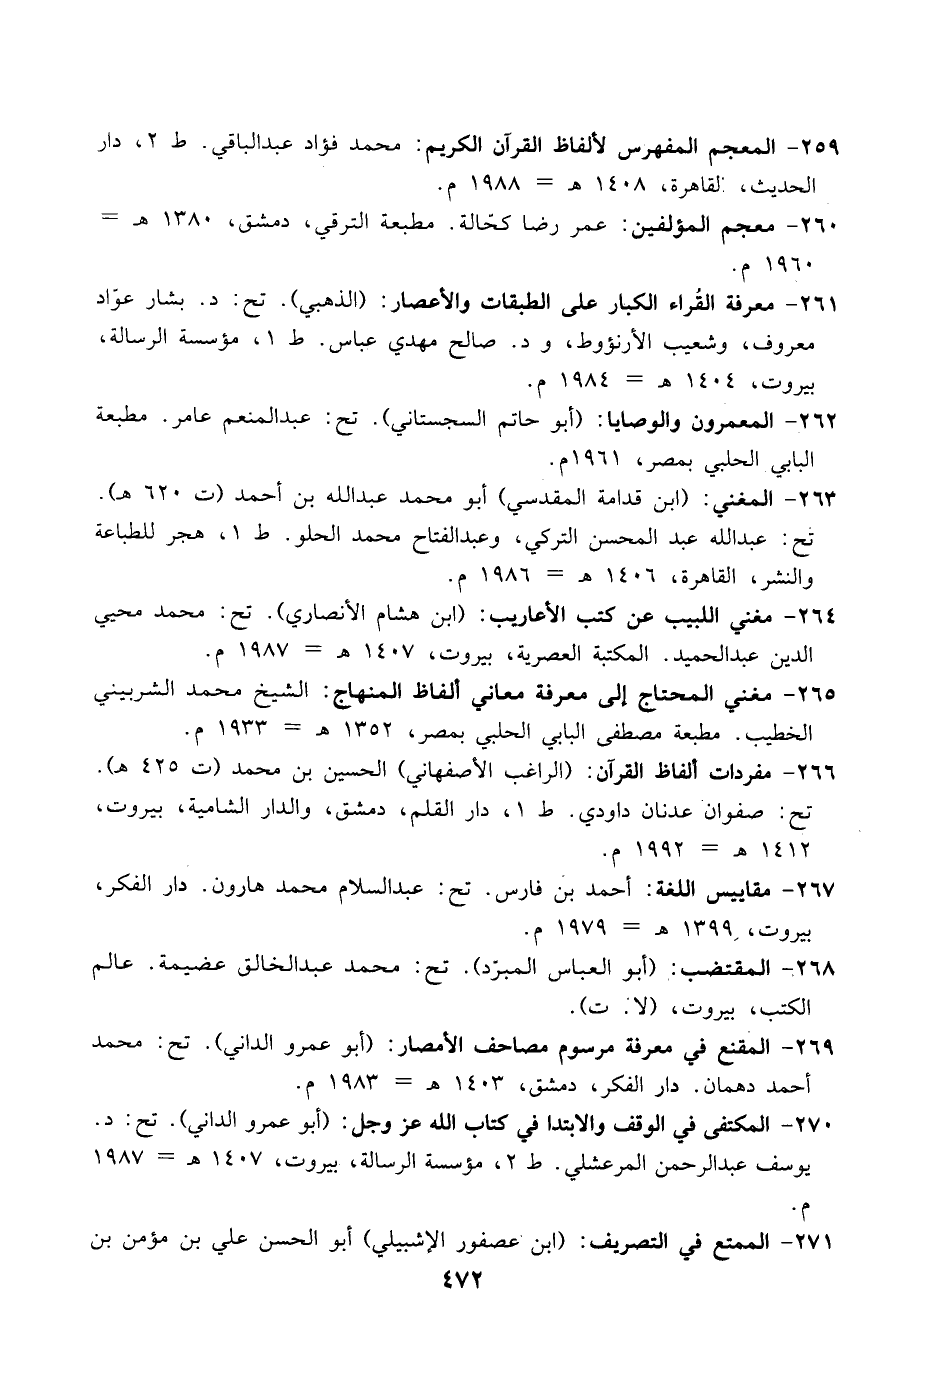 ٢٥٩- المعجم المفهرس لألفاظ القرآن الكريم: محمد فؤاد عبدالباقي. ط ٢، دار
الحديث، القاهرة، ١٤٠٨ هـ = ١٩٨٨ م.
٢٦٠- معجم المؤلفين: عمر رضا كحّالة. مطبعة الترقي، دمشق، ١٣٨٠ هـ =
١٩٦٠ م.
٢٦١- معرفة القُراء الكبار على الطبقات والأعصار: (الذهبي). تح: د. بشار عوّاد
معروف، وشعيب الأرنؤوط، و د. صالح مهدي عباس. ط ١، مؤسسة الرسالة،
بيروت، ١٤٠٤ هـ = ١٩٨٤ م.
٢٦٢- المعمرون والوصايا: (أبو حاتم السجستاني). تح: عبدالمنعم عامر. مطبعة
البابي الحلبي بمصر، ١٩٦١م.
٢٦٣- المغني: (ابن قدامة المقدسي) أبو محمد عبدالله بن أحمد (ت ٦٢٠ هـ).
تح: عبدالله عبد المحسن التركي، وعبدالفتاح محمد الحلو. ط ١، هجر للطباعة
والنشر، القاهرة، ١٤٠٦ هـ = ١٩٨٦ م.
٢٦٤- مغني اللبيب عن كتب الأعاريب: (ابن هشام الأنصاري). تح: محمد محيي
الدين عبدالحميد. المكتبة العصرية، بيروت، ١٤٠٧ هـ = ١٩٨٧ م.
٢٦٥- مغني المحتاج إلى معرفة معاني ألفاظ المنهاج: الشيخ محمد الشربيني
الخطيب. مطبعة مصطفى البابي الحلبي بمصر، ١٣٥٢ هـ = ١٩٣٣ م.
٢٦٦- مفردات ألفاظ القرآن: (الراغب الأصفهاني) الحسين بن محمد (ت ٤٢٥ هـ).
تح: صفوان عدنان داودي. ط ١، دار القلم، دمشق، والدار الشامية، بيروت،
١٤١٢ هـ = ١٩٩٢ م.
٢٦٧- مقاييس اللغة: أحمد بن فارس. تح: عبدالسلام محمد هارون. دار الفكر،
بيروت، ١٣٩٩ هـ = ١٩٧٩ م.
٢٦٨- المقتضب: (أبو العباس المبرّد). تح: محمد عبدالخالق عضيمة. عالم
الكتب، بيروت، (لا. ت).
٢٦٩- المقنع في معرفة مرسوم مصاحف الأمصار: (أبو عمرو الداني). تح: محمد
أحمد دهمان. دار الفكر، دمشق، ١٤٠٣ هـ = ١٩٨٣ م.
٢٧٠- المكتفى في الوقف والابتدا في كتاب الله عز وجل: (أبو عمرو الداني). تح: د.
يوسف عبدالرحمن المرعشلي. ط ٢، مؤسسة الرسالة، بيروت، ١٤٠٧ هـ = ١٩٨٧
م.
٢٧١- الممتع في التصريف: (ابن عصفور الإشبيلي) أبو الحسن علي بن مؤمن بن
٤٧٢